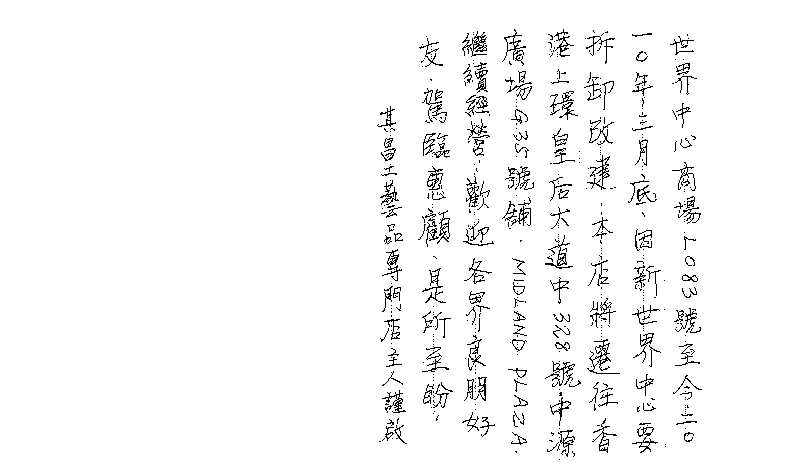 世界中心商場L083號至今二〇
一〇年三月底、因新世界中心要
拆卸改建、本店將遷往香
港上環皇后大道中328號中源
廣場G35號舖．MIDLAND PLAZA.
繼續經營、歡迎各界良朋好
友．駕臨惠顧、是所至盼．
其昌工藝品專門店主人謹啟